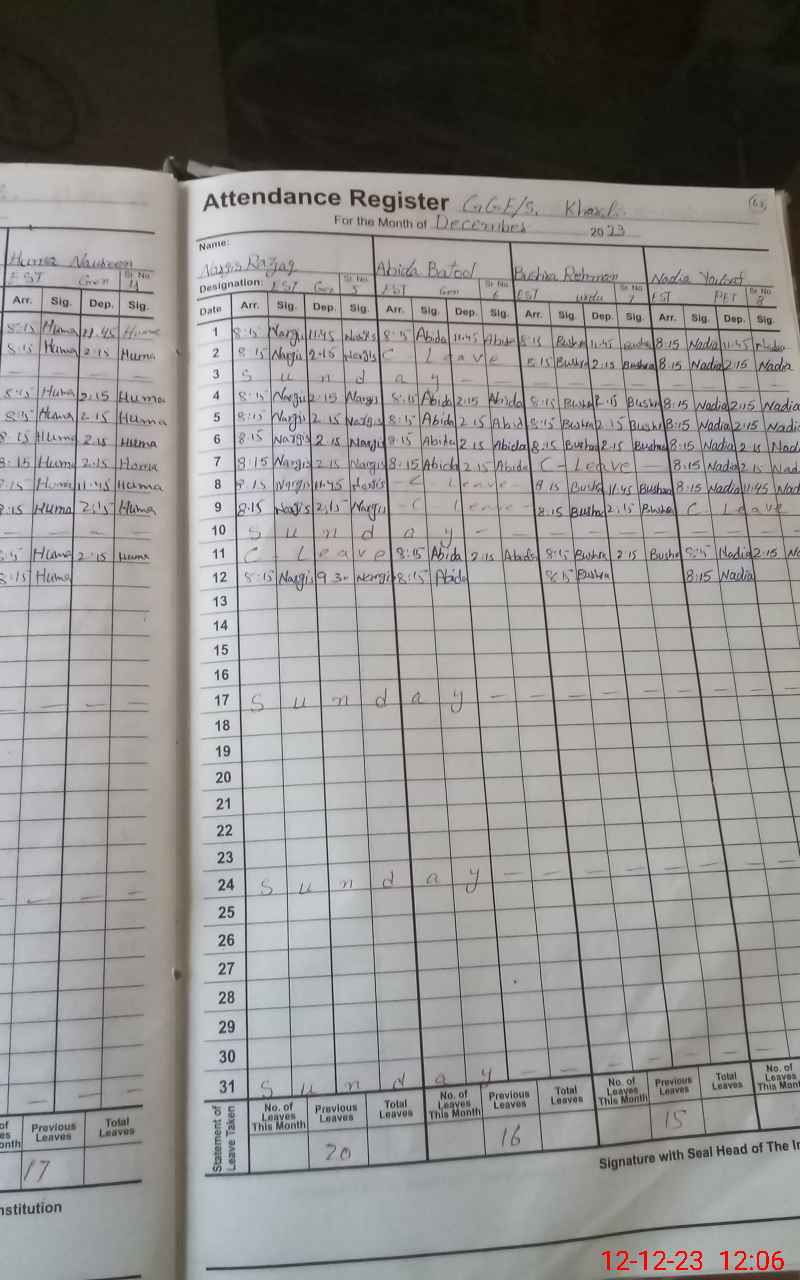 Attendance Register G.G.E/S. Kharli.
For the Month of December 2023
Name:
Huma Nausheen Nargis Razaq Abida Batool Bushra Rehman Nadia Yousaf
EST Gen Sr No 4 Designation: EST Gen Sr No 5 EST Gen Sr No 6 EST urdu Sr No 7 EST PET Sr No 8
Arr. Sig. Dep. Sig. Date Arr. Sig. Dep. Sig. Arr. Sig. Dep. Sig. Arr. Sig. Dep. Sig. Arr. Sig. Dep. Sig.
8:15 Huma 11:45 Huma 1 8:15 Nargis 11:45 Nargis 8:15 Abida 11:45 Abida 8:15 Bushra 11:45 Bushra 8:15 Nadia 11:45 Nadia
8:15 Huma 2:15 Huma 2 8:15 Nargis 2:15 Nargis C - Leave 8:15 Bushra 2:15 Bushra 8:15 Nadia 2:15 Nadia
3 S u n d a y - - - - - - - - - -
8:15 Huma 2:15 Huma 4 8:15 Nargis 2:15 Nargis 8:15 Abida 2:15 Abida 8:15 Bushra 2:15 Bushra 8:15 Nadia 2:15 Nadia
8:15 Huma 2:15 Huma 5 8:15 Nargis 2:15 Nargis 8:15 Abida 2:15 Abida 8:15 Bushra 2:15 Bushra 8:15 Nadia 2:15 Nadia
8:15 Huma 2:15 Huma 6 8:15 Nargis 2:15 Nargis 8:15 Abida 2:15 Abida 8:15 Bushra 2:15 Bushra 8:15 Nadia 2:15 Nadi
8:15 Huma 2:15 Huma 7 8:15 Nargis 2:15 Nargis 8:15 Abida 2:15 Abida C - Leave - 8:15 Nadia 2:15 Nad
8:15 Huma 11:45 Huma 8 8:15 Nargis 11:45 Nargis - C Leave - 8:15 Bushra 11:45 Bushra 8:15 Nadia 11:45 Nad
8:15 Huma 2:15 Huma 9 8:15 Nargis 2:15 Nargis - C Leave - 8:15 Bushra 2:15 Bushra C. Leave
10 S u n d a y - - - - - - - - - -
8:15 Huma 2:15 Huma 11 C - Leave 8:15 Abida 2:15 Abida 8:15 Bushra 2:15 Bushra 8:15 Nadia 2:15 Na
8:15 Huma 12 8:15 Nargis 9:30 Nargis 8:15 Abida 8:15 Bushra 8:15 Nadia
13
14
15
16
17 S u n d a y - - - - - - - - -
18
19
20
21
22
23
24 S u n d a y - - - - - - - - -
25
26
27
28
29
30
31 S u n d a y - - - - - - - -
Previous Leaves Total Leaves Statement of Leave Taken No. of Leaves This Month Previous Leaves Total Leaves No. of Leaves This Month Previous Leaves Total Leaves No. of Leaves This Month Previous Leaves Total Leaves No. of Leaves This Mont
17 20 16 15
nstitution Signature with Seal Head of The In
12-12-23 12:06